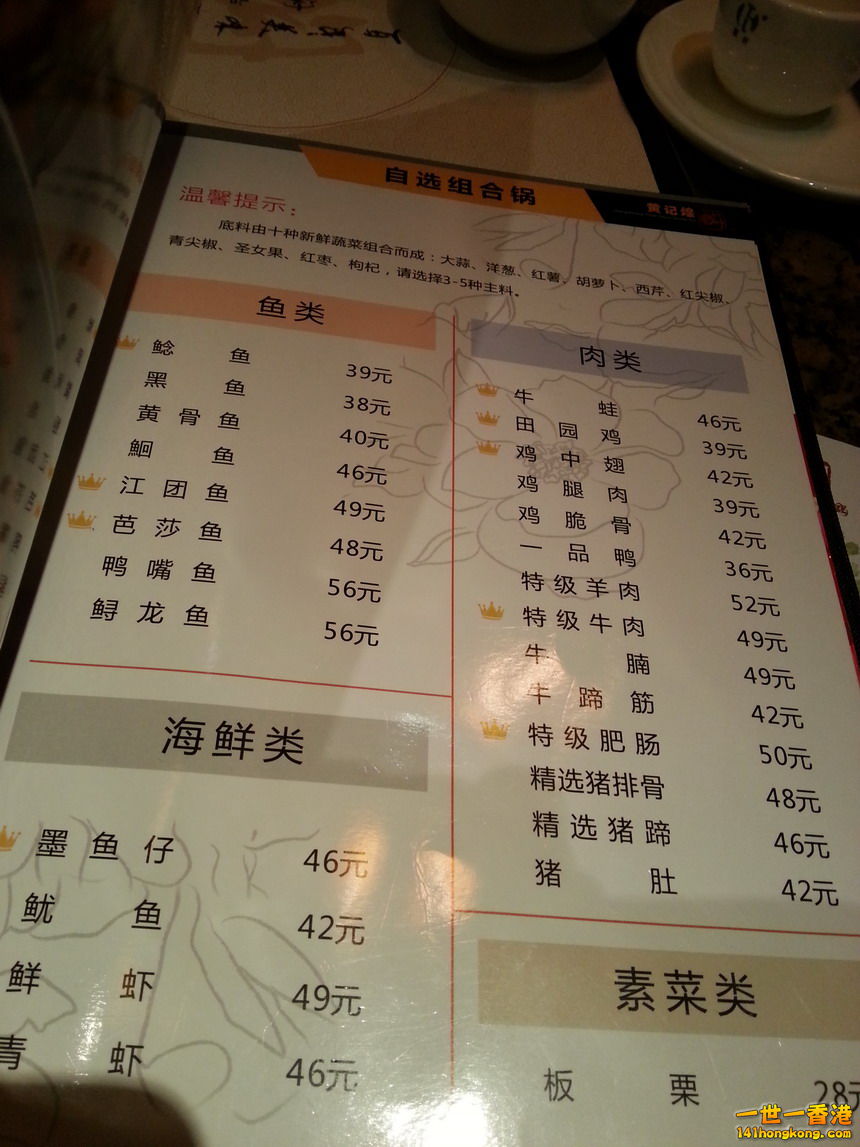 自选组合锅
黄记煌
温馨提示：
底料由十种新鲜蔬菜组合而成：大蒜、洋葱、红薯、胡萝卜、西芹、红尖椒、
青尖椒、圣女果、红枣、枸杞，请选择3-5种主料。
鱼类
鲶鱼 39元
黑鱼 38元
黄骨鱼 40元
鮰鱼 46元
江团鱼 49元
芭莎鱼 48元
鸭嘴鱼 56元
鲟龙鱼 56元
海鲜类
墨鱼仔 46元
鱿鱼 42元
鲜虾 49元
青虾 46元
肉类
牛蛙 46元
田园鸡 39元
鸡中翅 42元
鸡腿肉 39元
鸡脆骨 42元
一品鸭 36元
特级羊肉 52元
特级牛肉 49元
牛腩 49元
牛蹄筋 42元
特级肥肠 50元
精选猪排骨 48元
精选猪蹄 46元
猪肚 42元
素菜类
板栗 28元
一世一香港
141hongkong.com